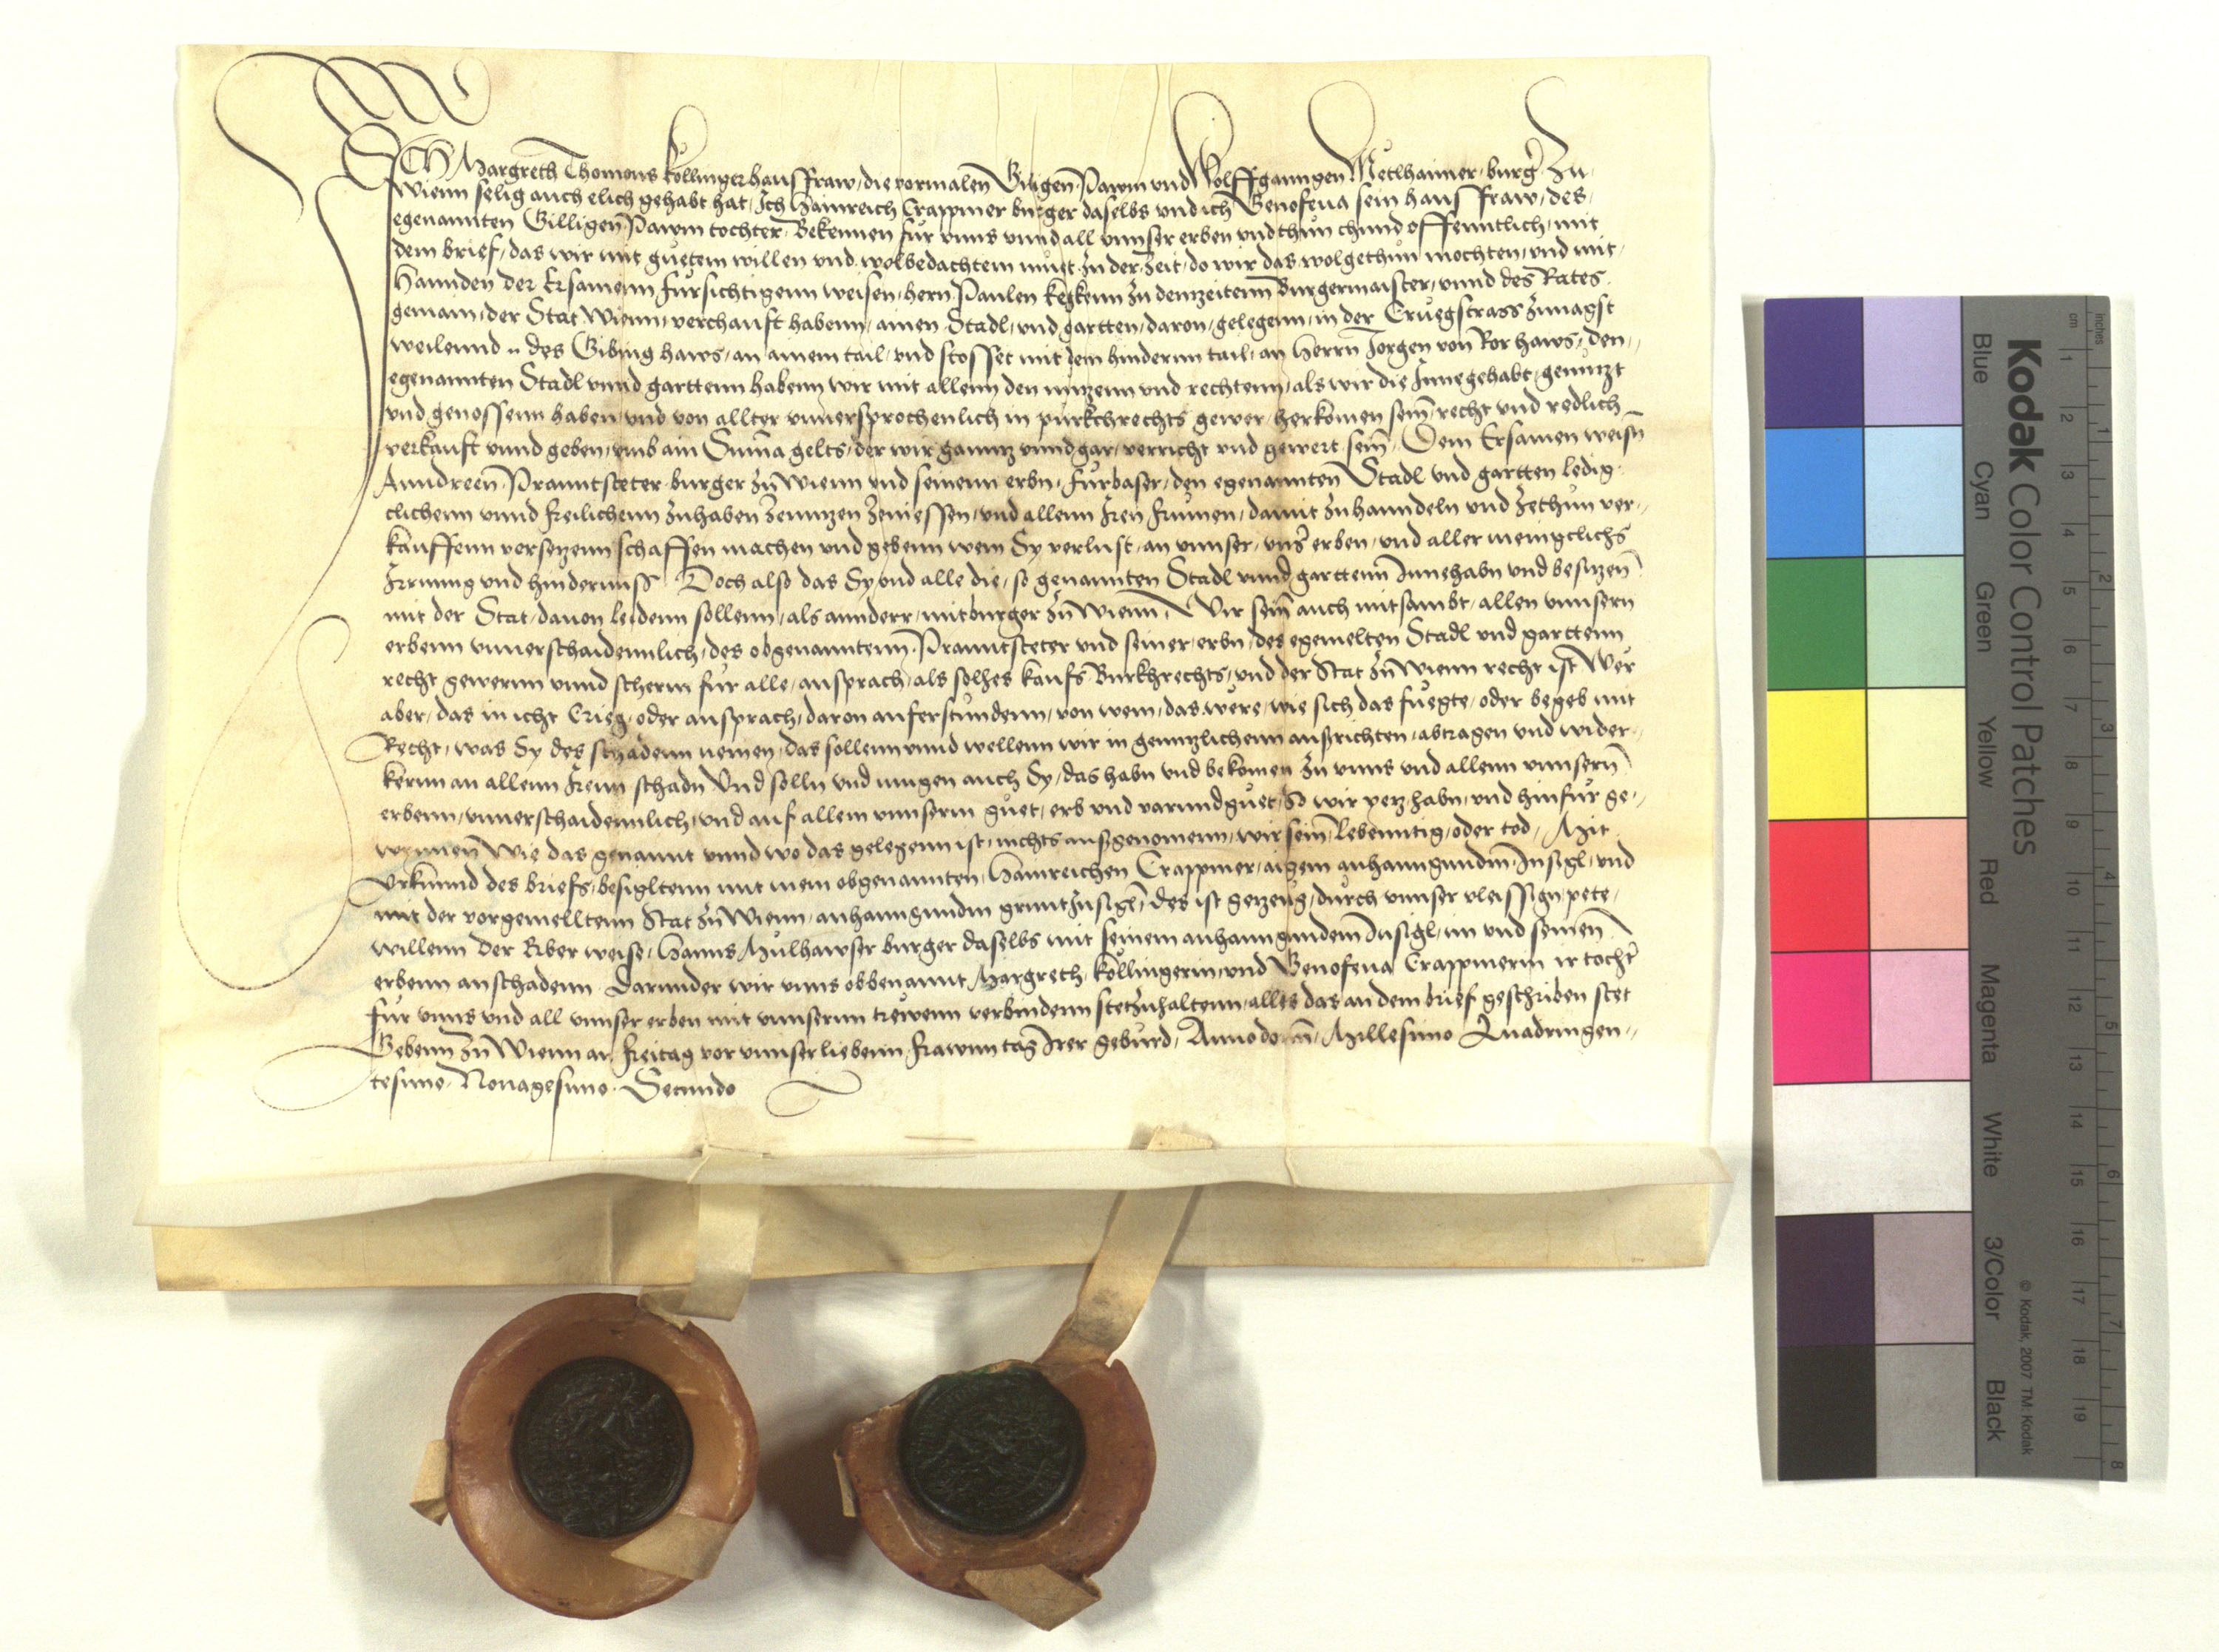 ICH Margreth Thomans Köllinger hausfraw, die vormalen Giligen Pawm und Wolffganngen Metlhaimer, burger Zu
Wienn selig auch elich gehabt hat, Ich Hainreich Trappiner burger daselbs und ich Genofeva sein hausfraw, des
egenannten Gilligen Pawm tochter, Bekennen für unns unnd all unnser erben und thun chund offenntlich, mit
dem brief, das wir mit guetem willen und wolbedachtem muet zu der Zeit, do wir das wolgethun mochten, und mit
Hannden der Ersamenn fursichtigenn weisen, hern Paulen Kekenn zu denzeitenn Burgermaister, unnd des Rates
gemain, der Stat Wienn, verchauft habenn, ainen Stadl, und gartten, daran, gelegenn, in der Cruegstrass zunagst
weilennd des Gibing haws, an ainem tail, und stosset mit dem hindernn tail, an Herrn Jorgen von Ror haws, den
egenannten Stadl unnd garttenn habenn wir mit allenn den nutzenn und rechtenn, als wir die Innegehabt, genutzt
und genossenn haben, und von allter unnersprochenlich in purkchrechts gewer, herkomen sein, recht und redlich
verkauft unnd geben, umb ain Summa gelts, der wir ganntz unnd gar, verricht und gewert sein. Dem Ersamen weisn
Anndreen Pranntsteter burger zu Wienn und seinenn erbn, furbaser, den egenannten Stadl und gartten ledig
clichenn unnd freilichenn zuhaben zenutzen zeniessen, und allenn Iren frumen, damit zuhanndeln und zethun ver
kauffenn versetzenn schaffen machen und gebenn wem Sy verlust, an unnser, unser erben, und aller meingclichs
Irrung und hindernuss Doch also das Sy und alle die, so genannten Stadl unnd garttenn Innehabn und besitzen
mit der Stat, dauon leidenn sollenn, als annderr, mitburger zu Wienn, Wir sein auch mitsambt, allen unnsern
erbenn unnerschaidennlich, des obgenanntenn Pranntsteter und seiner, erbn, des egemelten Stadl und garttenn
recht gewernn unnd scherm fur alle, ansprach, als solhes kaufs Burkhrechts, und der Stat zu Wienn recht ist Wer
aber, das in icht Crieg, oder ansprach, daran auferstundenn, von wem, das were, wie sich das fuegte, oder begeb mit
Recht, was Sy des schadenn nemen, das sollenn unnd wellenn wir in genntzlichenn außrichten, abtragen und wider
kernn an allenn Irenn schadn Und solln und mugen auch Sy, das habn und bekomen zu unns und allenn unnsern
erbenn, unnerschaidennlich, und auf allem unnserm guet, erb und varundguet, so wir yetz habn, und hinfur ge
wynnen Wie das genannt unnd wo das gelegenn ist, nichts außgenomenn, wir sein lebenntig, oder tod, Mit
Urkunnd des briefs, besigltenn mit mein obgenannten, Hainreichen Trappiner, aigem anhanngundm Insigl, und
mit der vorgemelltenn Stat zu Wienn, anhanngundm gruntInsigl, des ist getzeug, durch unnser vleissign pete,
willenn der Erber weise, Hanns Mülhawser burger daselbs mit seinem anhanngundem Insigl, im und seinen
erbenn an schadenn Darunder wir unns obbenannt Margreth, Köllingerin, und Genofeva Trappinerin ir tochter
fur unns und all unnser erben mit unnsernn trewenn verbindenn stet zuhaltenn, alles das an dem brief geschriben stet
Gebenn zu Wienn an Freitag vor unnser liebenn Frawnn tag Irer geburd, Anno domini, Millesimo Quadringen
tesimo, Nonagesimo Secundo
Kodak Color Control Patches
Blue Cyan Green Yellow Red Magenta White 3/Color Black
© Kodak, 2007 TM: Kodak
cm 1 2 3 4 5 6 7 8 9 10 11 12 13 14 15 16 17 18 19
inches 1 2 3 4 5 6 7 8